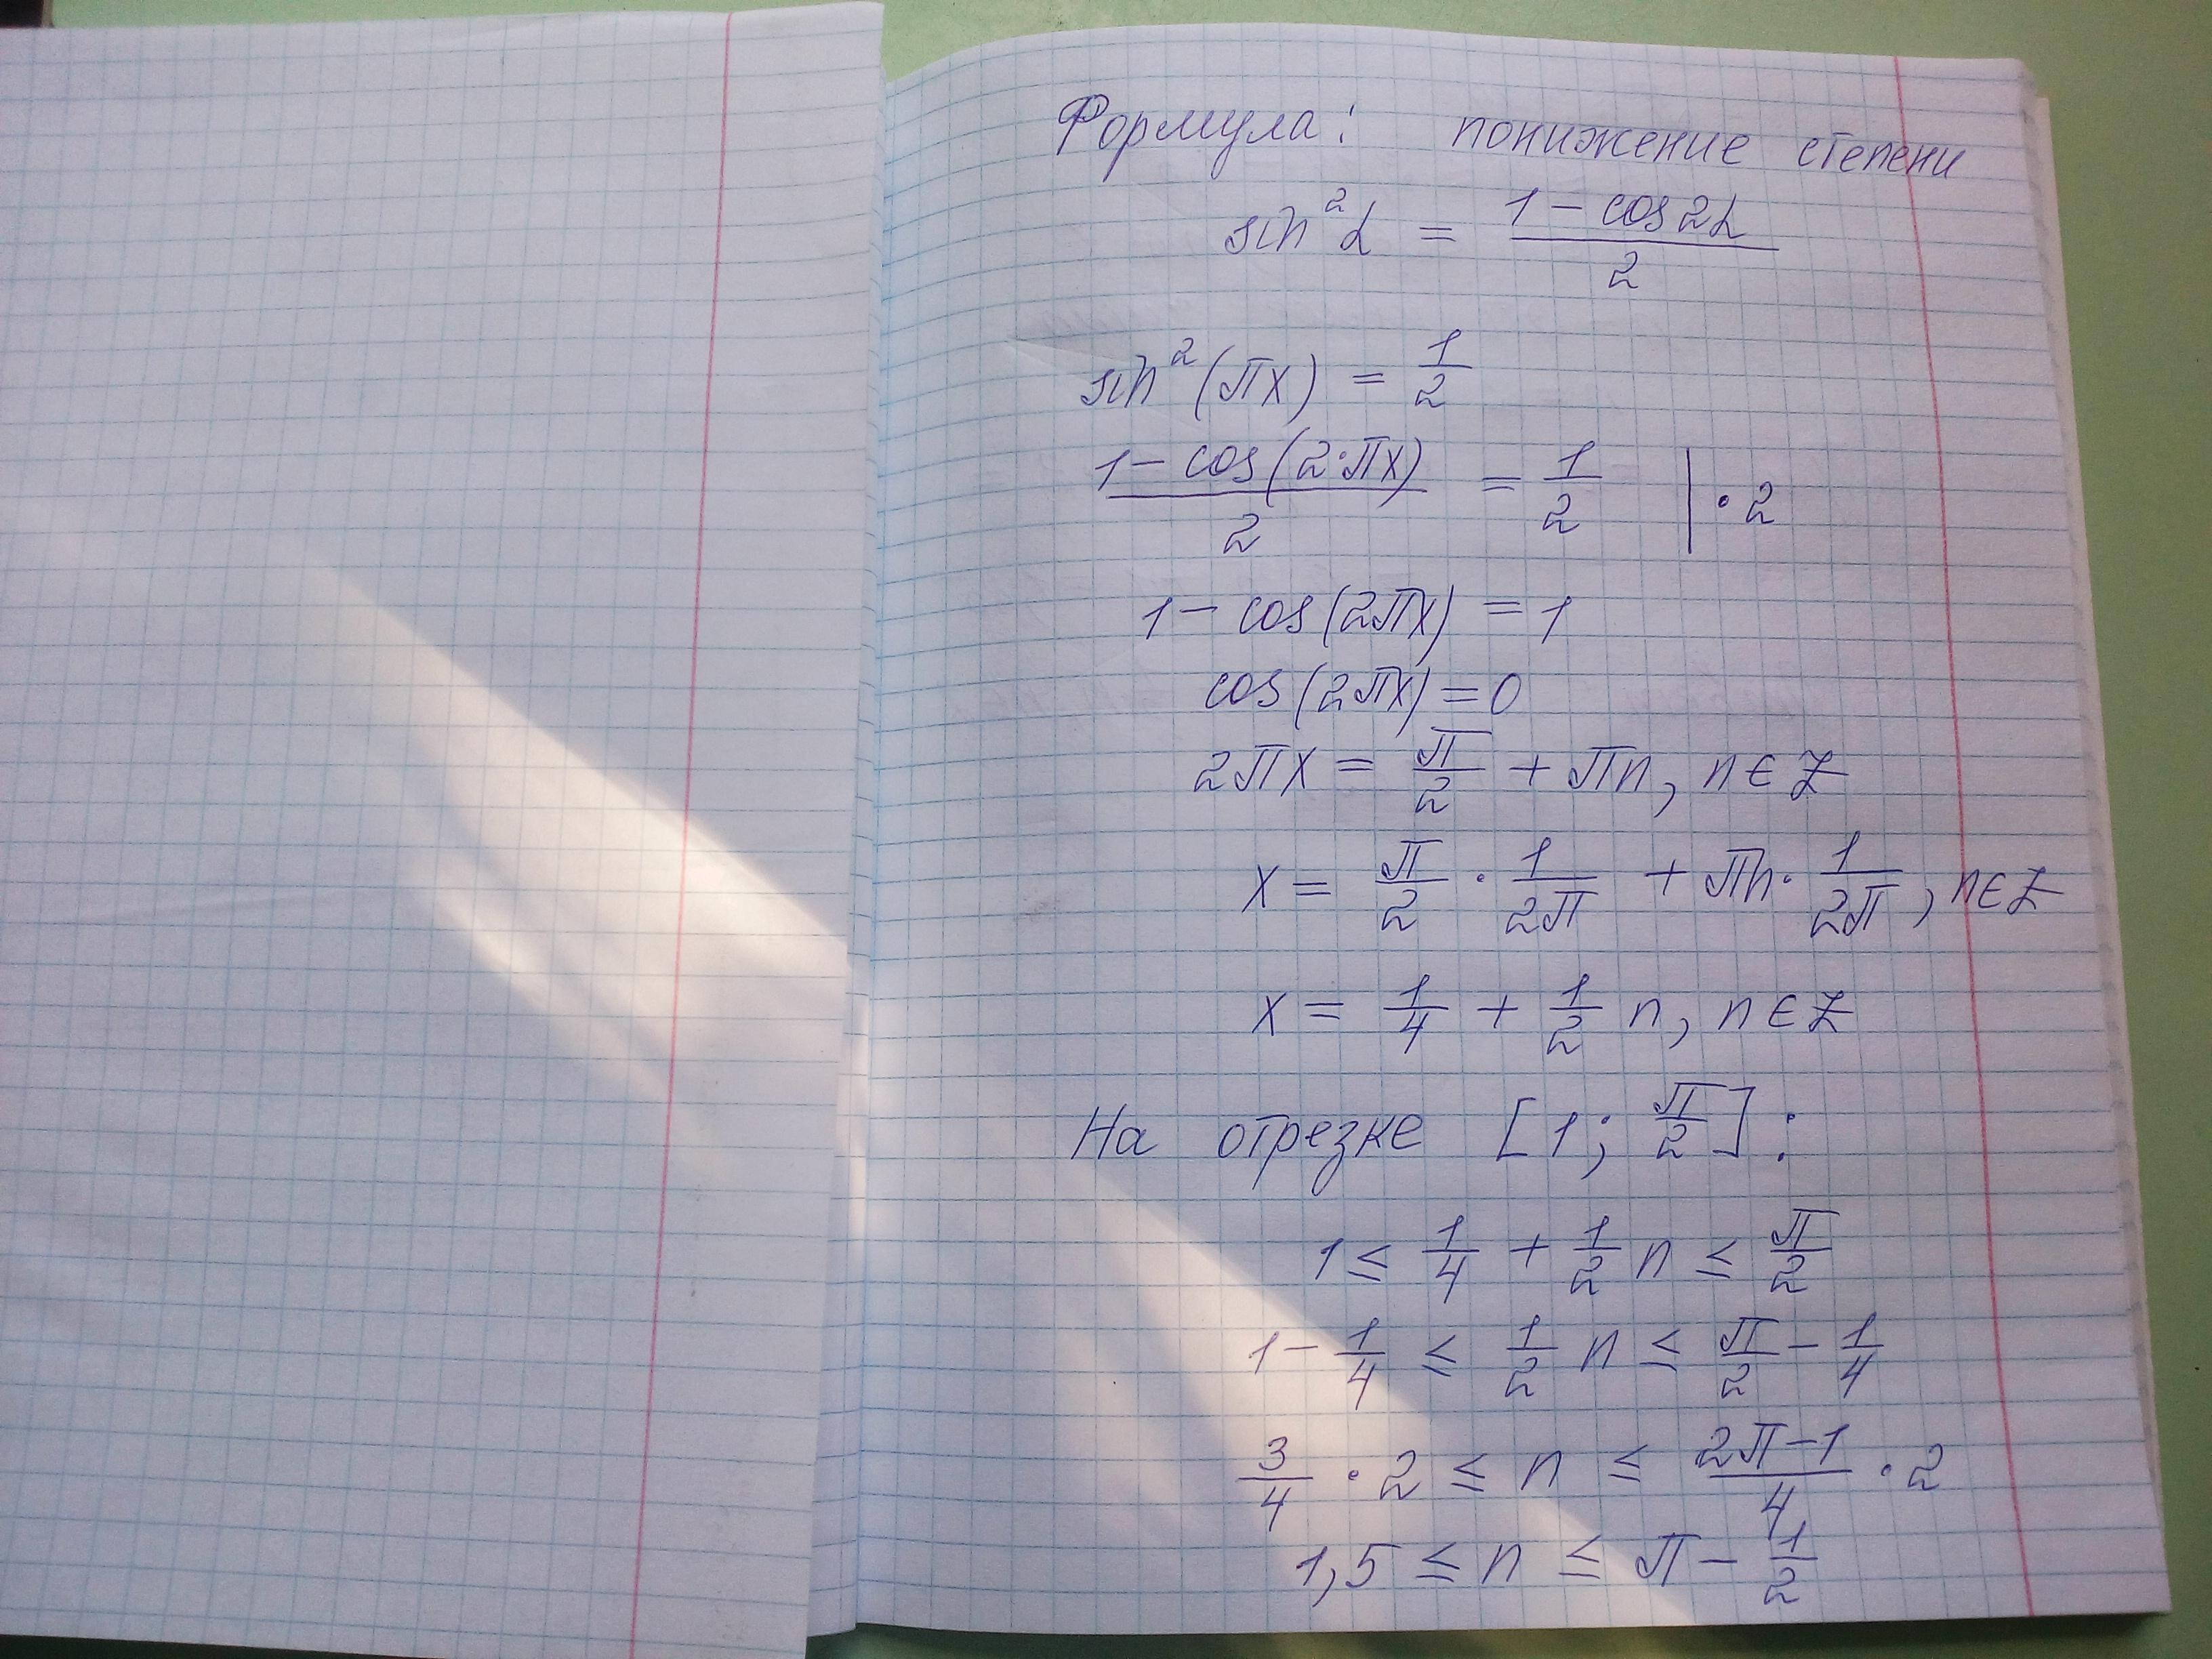 Формула: понижение степени
sin²α = (1 - cos2α)/2
sin²(πx) = 1/2
(1 - cos(2·πx))/2 = 1/2 | · 2
1 - cos(2πx) = 1
cos(2πx) = 0
2πx = π/2 + πn, n ∈ Z
x = π/2 · 1/2π + πn · 1/2π, n ∈ Z
x = 1/4 + 1/2 n, n ∈ Z
На отрезке [1; π/2]:
1 ≤ 1/4 + 1/2 n ≤ π/2
1 - 1/4 ≤ 1/2 n ≤ π/2 - 1/4
3/4 · 2 ≤ n ≤ (2π - 1)/4 · 2
1,5 ≤ n ≤ π - 1/2